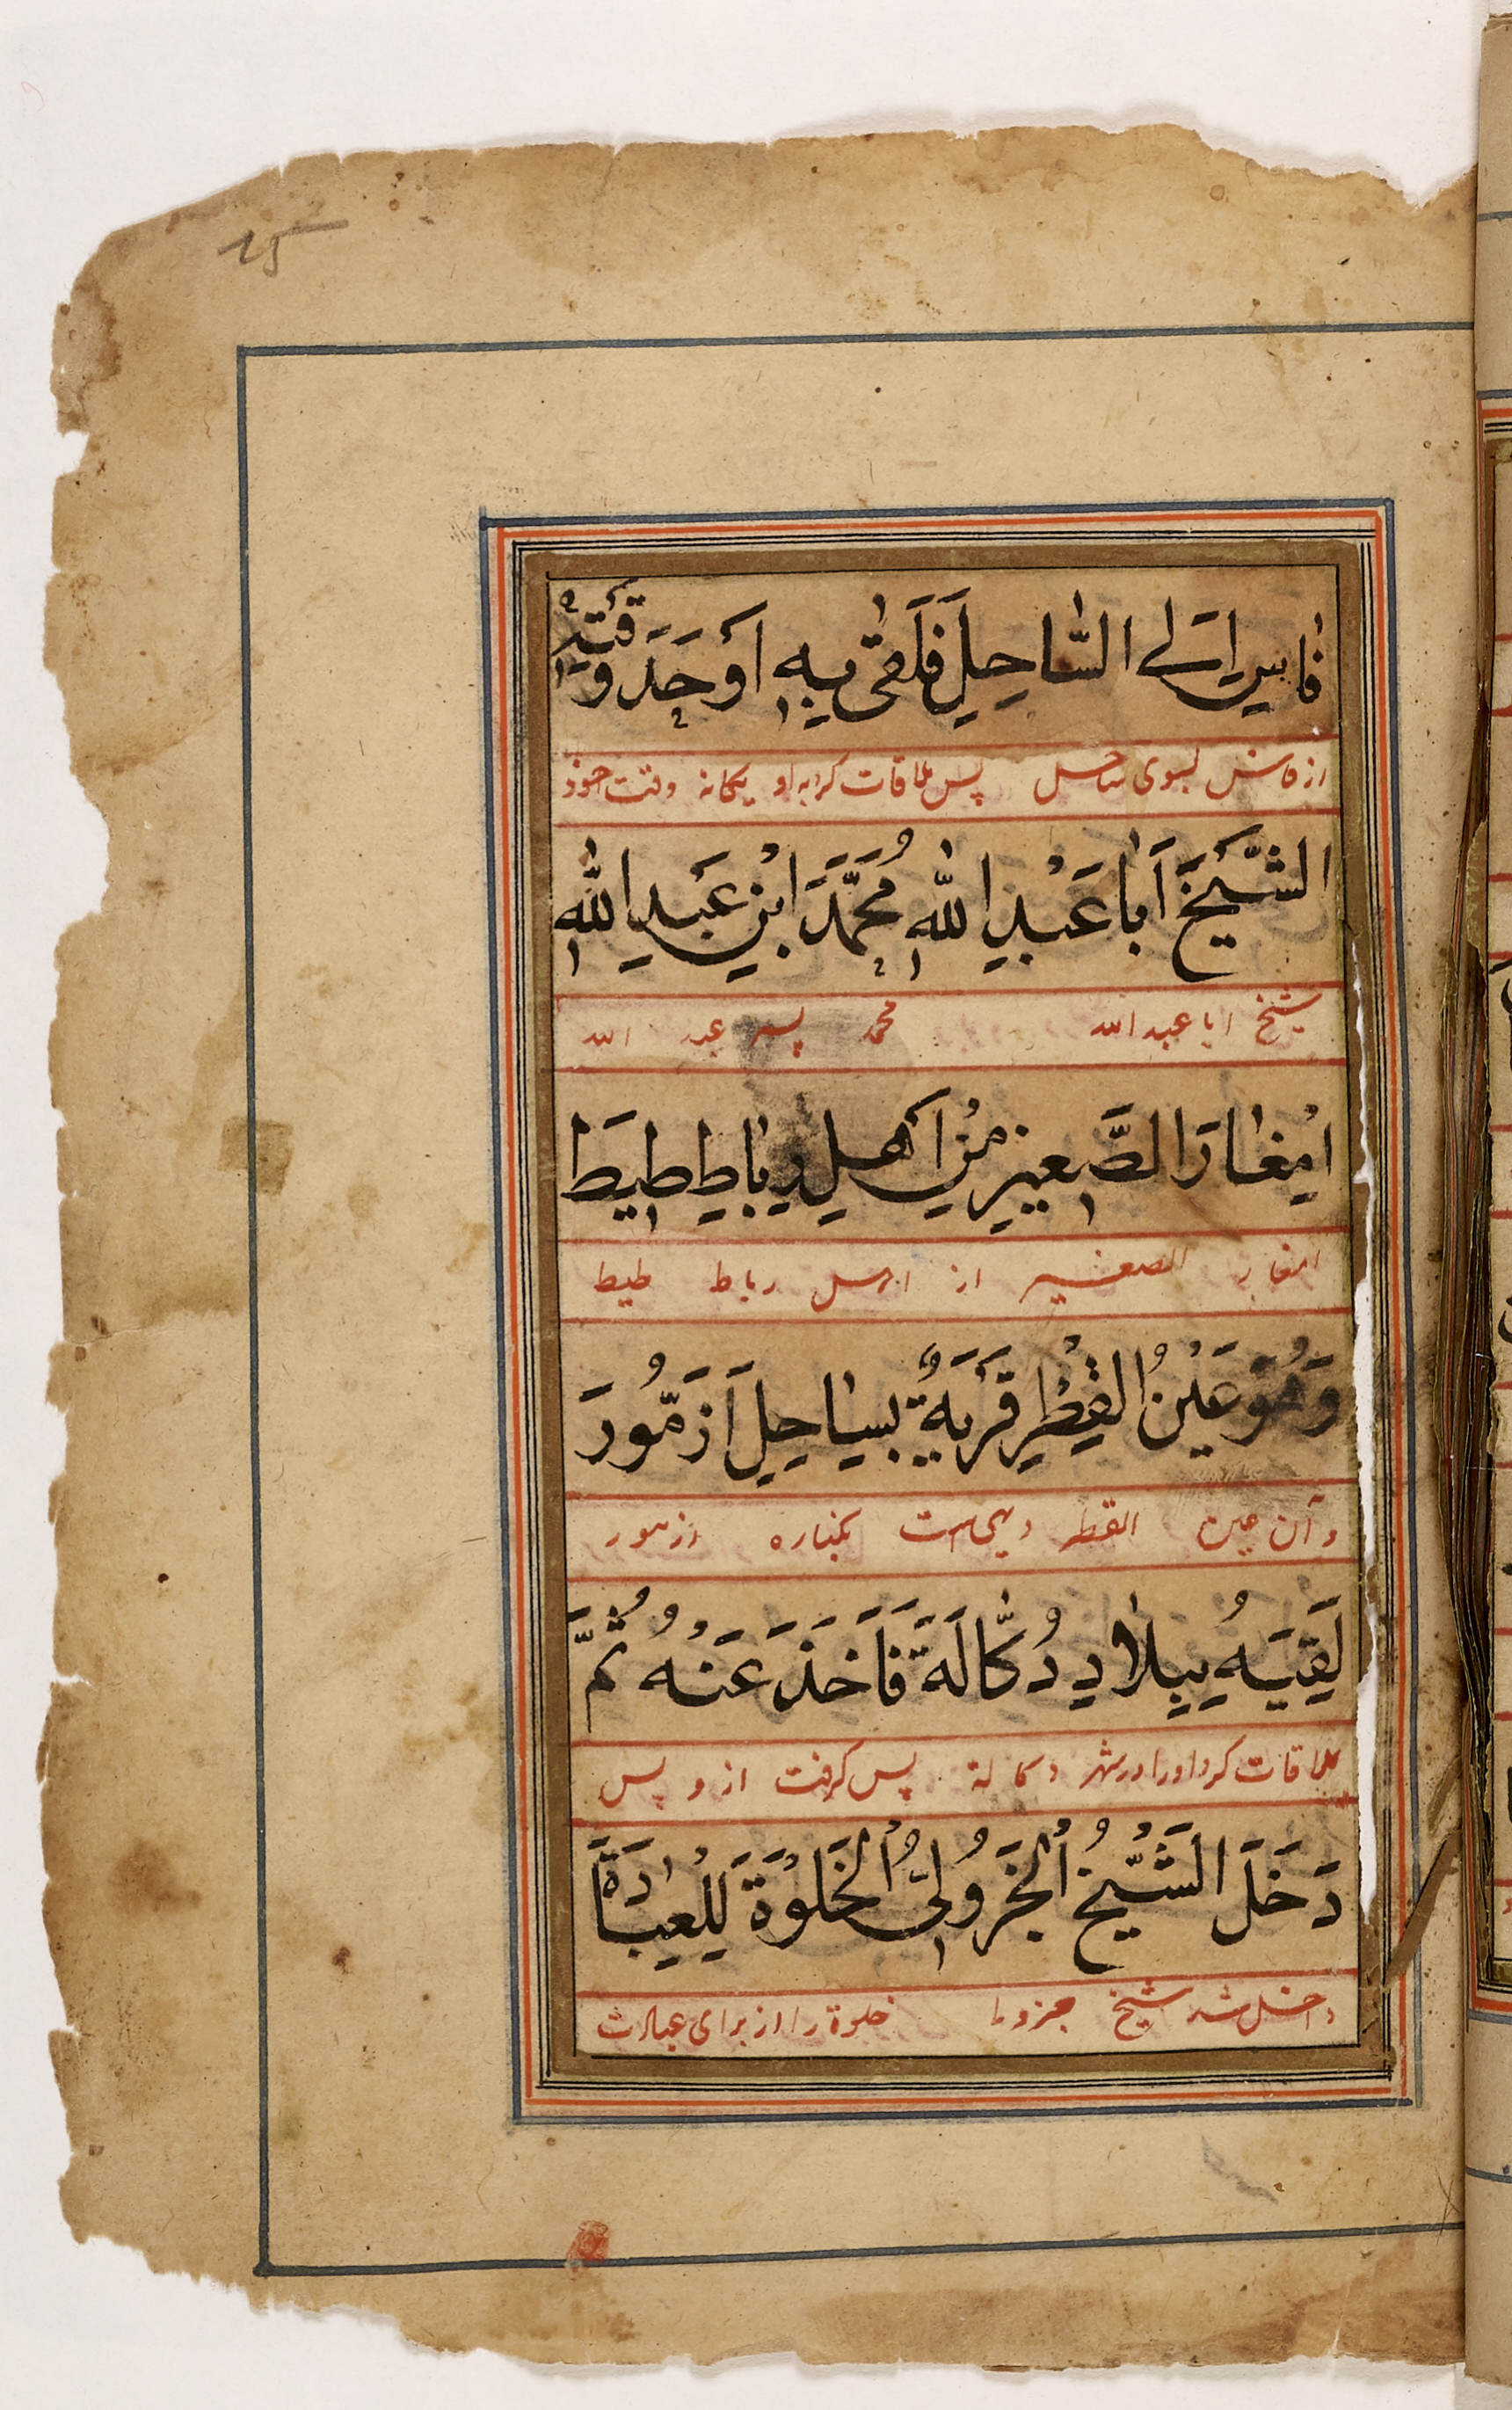 15
فَاسِ اِلَى السَّاحِلِ فَلَقٰى بِهٖ اَوْحَدَ وَقْتِهٖ
از فاس بسوی ساحل پس ملاقات کرد به او یکانه وقت خود
الشَّيْخَ اَبَا عَبْدِ اللّٰهِ مُحَمَّدَ ابْنِ عَبْدِ اللّٰهِ
شیخ ابا عبد الله محمد پسر عبد الله
اَمْغَارَ الصَّغِيْرِ مِنْ اَهْلِ رِبَاطِ طِيْطَ
امغار الصغیر از اهل رباط طیط
وَهُوَ عَيْنُ الْقِطْرِ قَرْيَةٌ بِسَاحِلِ اَزَمُّورَ
و آن عین القطر دیهی است بکناره ازمور
لَقِيَهُ بِبِلَادِ دُكَّالَةَ فَاَخَذَ عَنْهُ ثُمَّ
ملاقات کرد اورا در شهر دکالة پس کرفت از و پس
دَخَلَ الشَّيْخُ الْجَزُولِيُّ الْخَلْوَةَ لِلْعِبَادَةِ
داخل شد شیخ جزولی خلوة را از برای عبادت